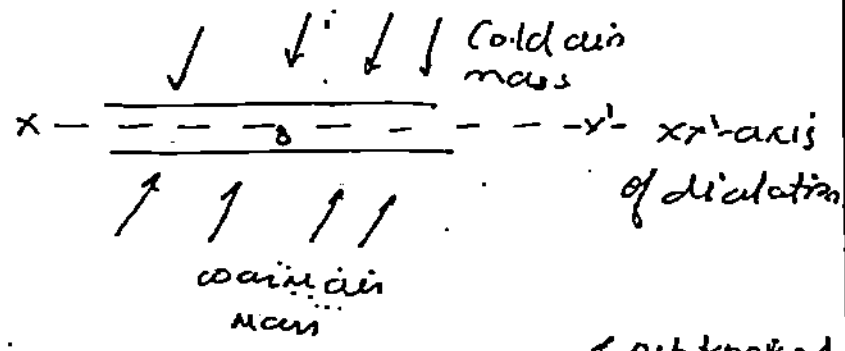 Cold air
mass
x x' xx'-axis
of dialation
warm air
mass